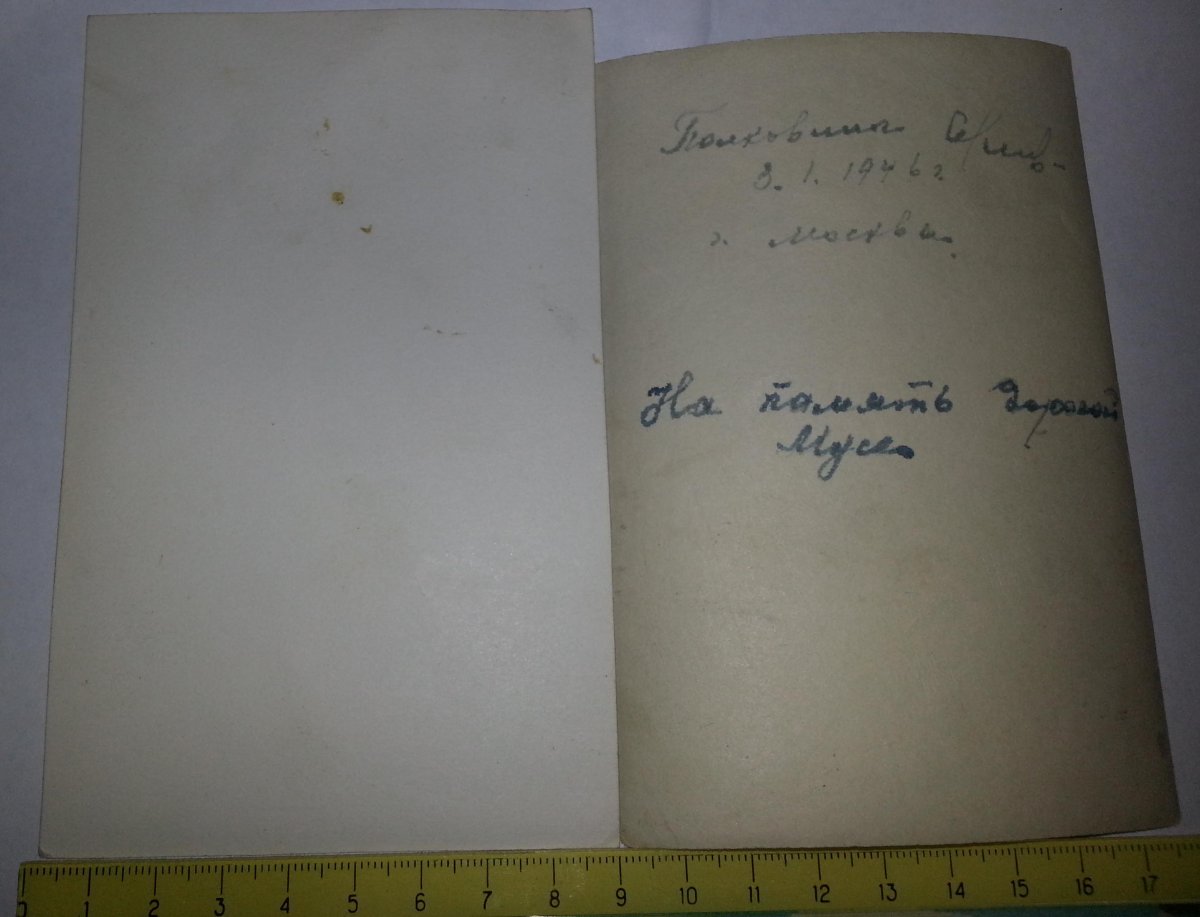 Полковник
3. 1. 1946 г.
г. Москва.
На память дорогой
Мусе
0 1 2 3 4 5 6 7 8 9 10 11 12 13 14 15 16 17